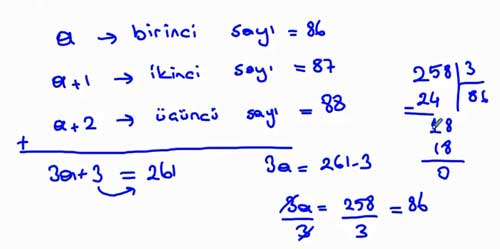 a → birinci sayı = 86
a+1 → ikinci sayı = 87
a+2 → üçüncü sayı = 88
+
3a+3 = 261
3a = 261-3
3a/3 = 258/3 = 86
258 | 3
- 24 | 86
18
18
0